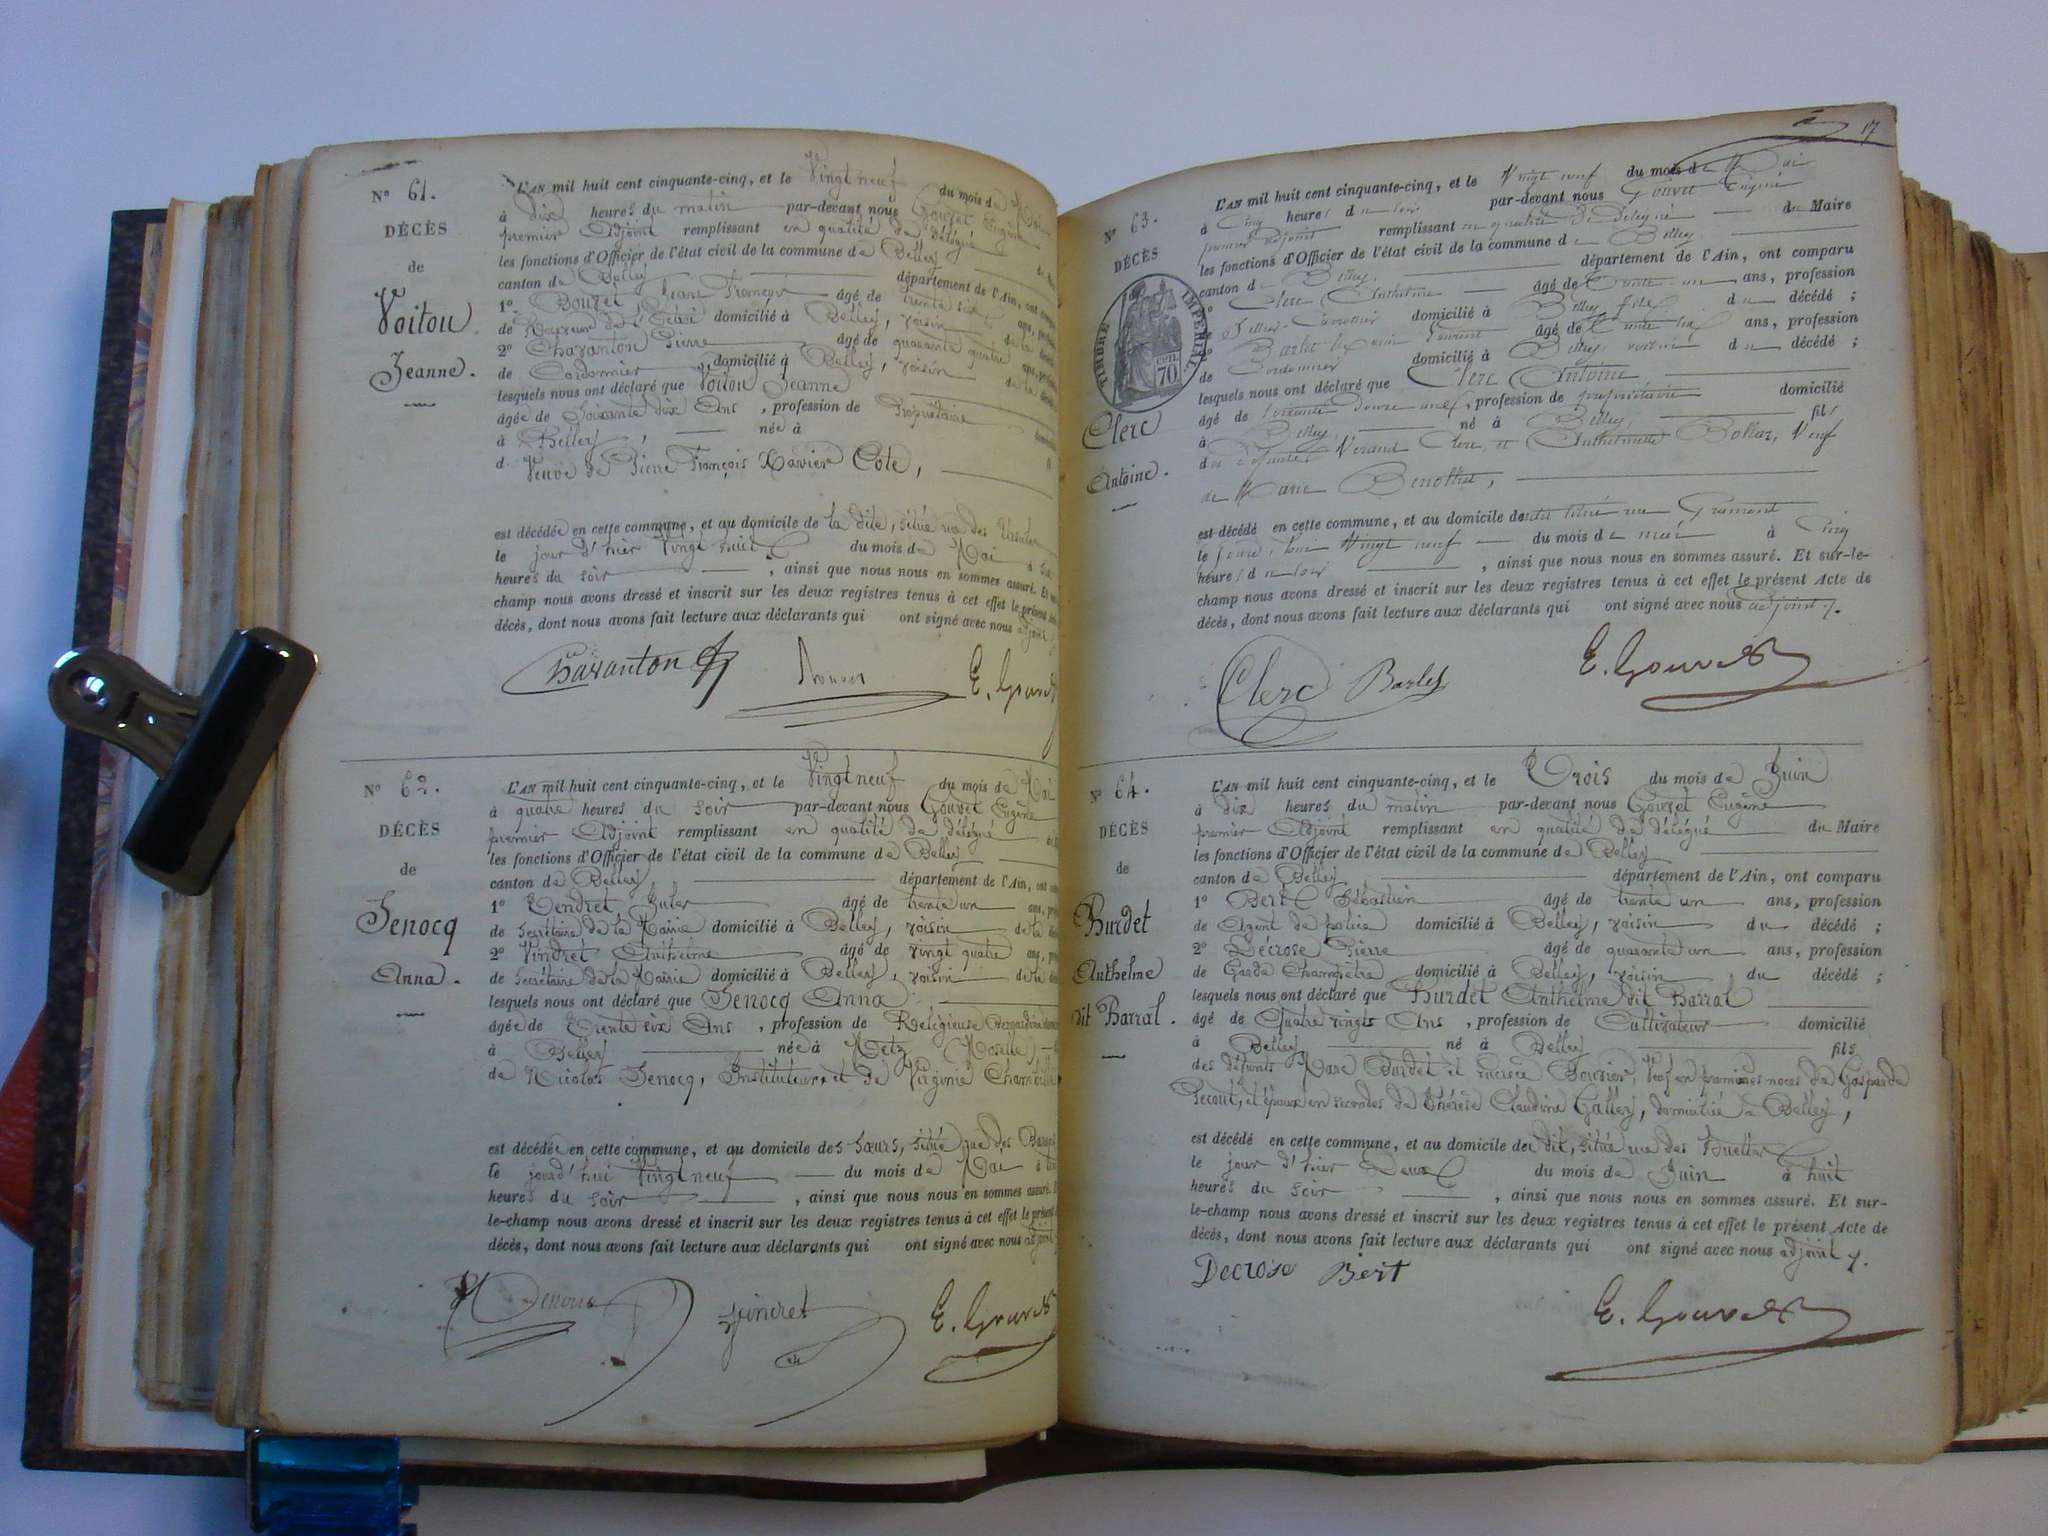 N° 61.
DÉCÈS
de
Voitou
Jeanne.
L'AN mil huit cent cinquante-cinq, et le Vingt neuf du mois de Mai
à dix heures du matin par-devant nous Gouvet Eugène
premier Adjoint remplissant en qualité de délégué
les fonctions d'Officier de l'état civil de la commune de Belley
canton de Belley département de l'Ain, ont
1° Jean François âgé de trente six ans,
de domicilié à Belley, voisin de la
2° Chavanton Pierre âgé de quarante quatre ans,
de Cordonnier domicilié à Belley, voisin de la
lesquels nous ont déclaré que Voitou Jeanne
âgée de Soixante dix Ans, profession de Propriétaire
à Belley née à
d. Veuve de Pierre François Xavier Cote,
est décédée en cette commune, et au domicile de la dite, située rue des
le jour d'hier Vingt huit du mois de Mai à
heures du soir, ainsi que nous nous en sommes assuré. Et
champ nous avons dressé et inscrit sur les deux registres tenus à cet effet le présent
décès, dont nous avons fait lecture aux déclarants qui ont signé avec nous adjoint
Chavanton E. Gouvet
N° 62.
DÉCÈS
de
Senocq
Anna.
L'AN mil huit cent cinquante-cinq, et le Vingt neuf du mois de Mai
à quatre heures du soir par-devant nous Gouvet Eugène
premier Adjoint remplissant en qualité de délégué
les fonctions d'Officier de l'état civil de la commune de Belley
canton de Belley département de l'Ain, ont
1° Tendret Jules âgé de trente un ans,
de Secrétaire de la Mairie domicilié à Belley, voisin de la
2° Vindret Anthelme âgé de vingt quatre ans,
de Secrétaire de la Mairie domicilié à Belley, voisin de la
lesquels nous ont déclaré que Senocq Anna
âgée de Trente six Ans, profession de Religieuse Bernardine
à Belley née à Metz (Moselle)
de Nicolas Senocq, Instituteur, et de Virginie
est décédée en cette commune, et au domicile des Sœurs, située rue des
le jourd'hui Vingt neuf du mois de Mai à
heures du soir, ainsi que nous nous en sommes assuré.
le-champ nous avons dressé et inscrit sur les deux registres tenus à cet effet le présent
décès, dont nous avons fait lecture aux déclarants qui ont signé avec nous adjoint
Vindret E. Gouvet
17
N° 63.
DÉCÈS
de
TIMBRE IMPERIAL
CEN. 70
Clerc
Antoine.
L'AN mil huit cent cinquante-cinq, et le Vingt neuf du mois de Mai
à Cinq heures du soir par-devant nous Gouvet Eugène
premier adjoint remplissant en qualité de délégué du Maire
les fonctions d'Officier de l'état civil de la commune de Belley
canton de Belley département de l'Ain, ont comparu
1° Clerc Anthelme âgé de trente un ans, profession
de domicilié à Belley fils du décédé ;
2° Barlet âgé de ans, profession
de Cordonnier domicilié à Belley voisin du décédé ;
lesquels nous ont déclaré que Clerc Antoine
âgé de soixante douze ans, profession de propriétaire domicilié
à Belley, né à Belley, fils
des défunts Clerc, et Anthelmette Bollaz, Veuf
de Marie Benothet,
est décédé en cette commune, et au domicile du dit situé rue Gramont
le jourd'hui Vingt neuf du mois de mai à Cinq
heures du soir, ainsi que nous nous en sommes assuré. Et sur-le-
champ nous avons dressé et inscrit sur les deux registres tenus à cet effet le présent Acte de
décès, dont nous avons fait lecture aux déclarants qui ont signé avec nous adjoint.
Clerc Barlet E. Gouvet
N° 64.
DÉCÈS
de
Burdet
Anthelme
dit Barral.
L'AN mil huit cent cinquante-cinq, et le Trois du mois de Juin
à dix heures du matin par-devant nous Gouvet Eugène
premier Adjoint remplissant en qualité de délégué du Maire
les fonctions d'Officier de l'état civil de la commune de Belley
canton de Belley département de l'Ain, ont comparu
1° Bert Sébastien âgé de trente un ans, profession
de Agent de police domicilié à Belley, voisin du décédé ;
2° Décrose Pierre âgé de quarante un ans, profession
de Garde Champêtre domicilié à Belley, voisin du décédé ;
lesquels nous ont déclaré que Burdet Anthelme dit Barral
âgé de Quatre vingts Ans, profession de Cultivateur domicilié
à Belley né à Belley fils
des défunts Marc Burdet et Lucrèce Bouvier, Veuf en premières noces de Gasparde
Pecout, et époux en secondes de Thérèse Claudine Gallay, domicilié à Belley,
est décédé en cette commune, et au domicile du dit, situé rue des
le jour d'hier Deux du mois de Juin à huit
heures du soir, ainsi que nous nous en sommes assuré. Et sur-
le-champ nous avons dressé et inscrit sur les deux registres tenus à cet effet le présent Acte de
décès, dont nous avons fait lecture aux déclarants qui ont signé avec nous adjoint.
Decrose Bert
E. Gouvet